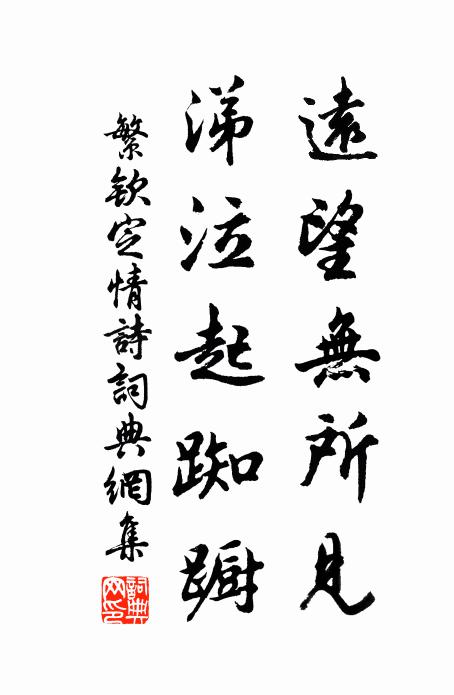 遠望無所見
涕泣起踟蹰
繁欽定情詩詞典網集
詞典網印